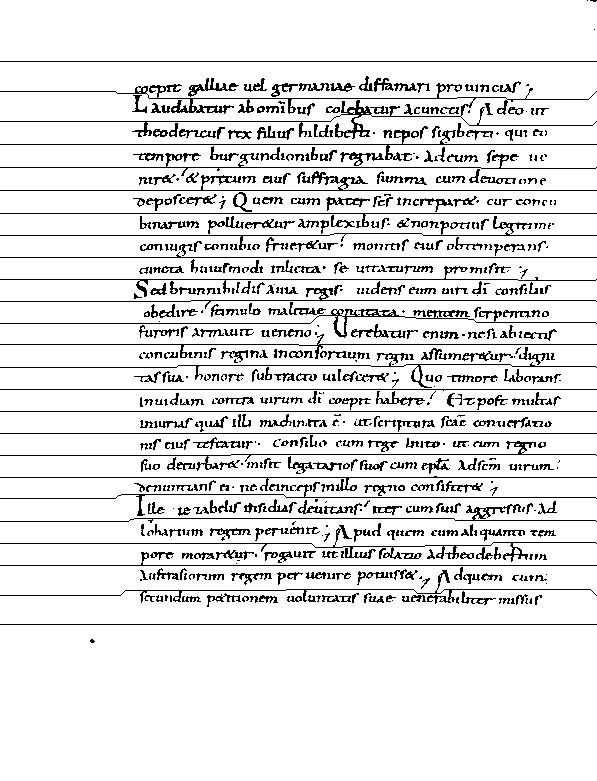 coepit galliae uel germaniae diffamari prouincias ;
Laudabatur abomībus colebatur acunctis! Adeo ut
theodericus rex filius hildiberti · nepos sigiberti · qui eo
tempore burgundionibus regnabat · adeum sepe ue
nir& ! & p&itum eius suffragia summa cum deuotione
deposcer& ; Quem cum pater scs increpar& · cur concu
binarum pollueretur amplexibus · & nonpotius legitime
coniugis conubio frueretur ! monitis eius obtemperans ·
cuncta huiusmodi inlicita · se uitaturum promisit ;
Sed brunnihildis auia regis · uidens eum uiri dī consiliis
obedire · stimulo malitiae concitata · mentem serpentino
furoris armauit ueneno ; Uerebatur enim · nesi abiectis
concubinis regina inconsortium regni assumer&ur · digni
tas sua · honore subtracto uilescer& ; Quo timore laborans
inuidiam contra uirum dī coepit habere ! Et post multas
iniurias quas illi machinata ē · ut scriptura scae conuersatio
nis eius testatur · consilio cum rege inito · ut eum regno
suo deturbar& · misit legatarios suos cum epla ad scm uirum !
denuntians ei · ne deinceps in illo regno consister& ;
Ille insidias deuitans ! iter cum suis aggressus · ad
loharium regem peruenit ; Apud quem cum aliquanto tem
pore morar&ur · rogauit ut illius solatio ad theodebertum
austrasiorum regem peruenire potuiss& ; Ad quem cum
secundum p&itionem uoluntatis suae uenerabiliter missus